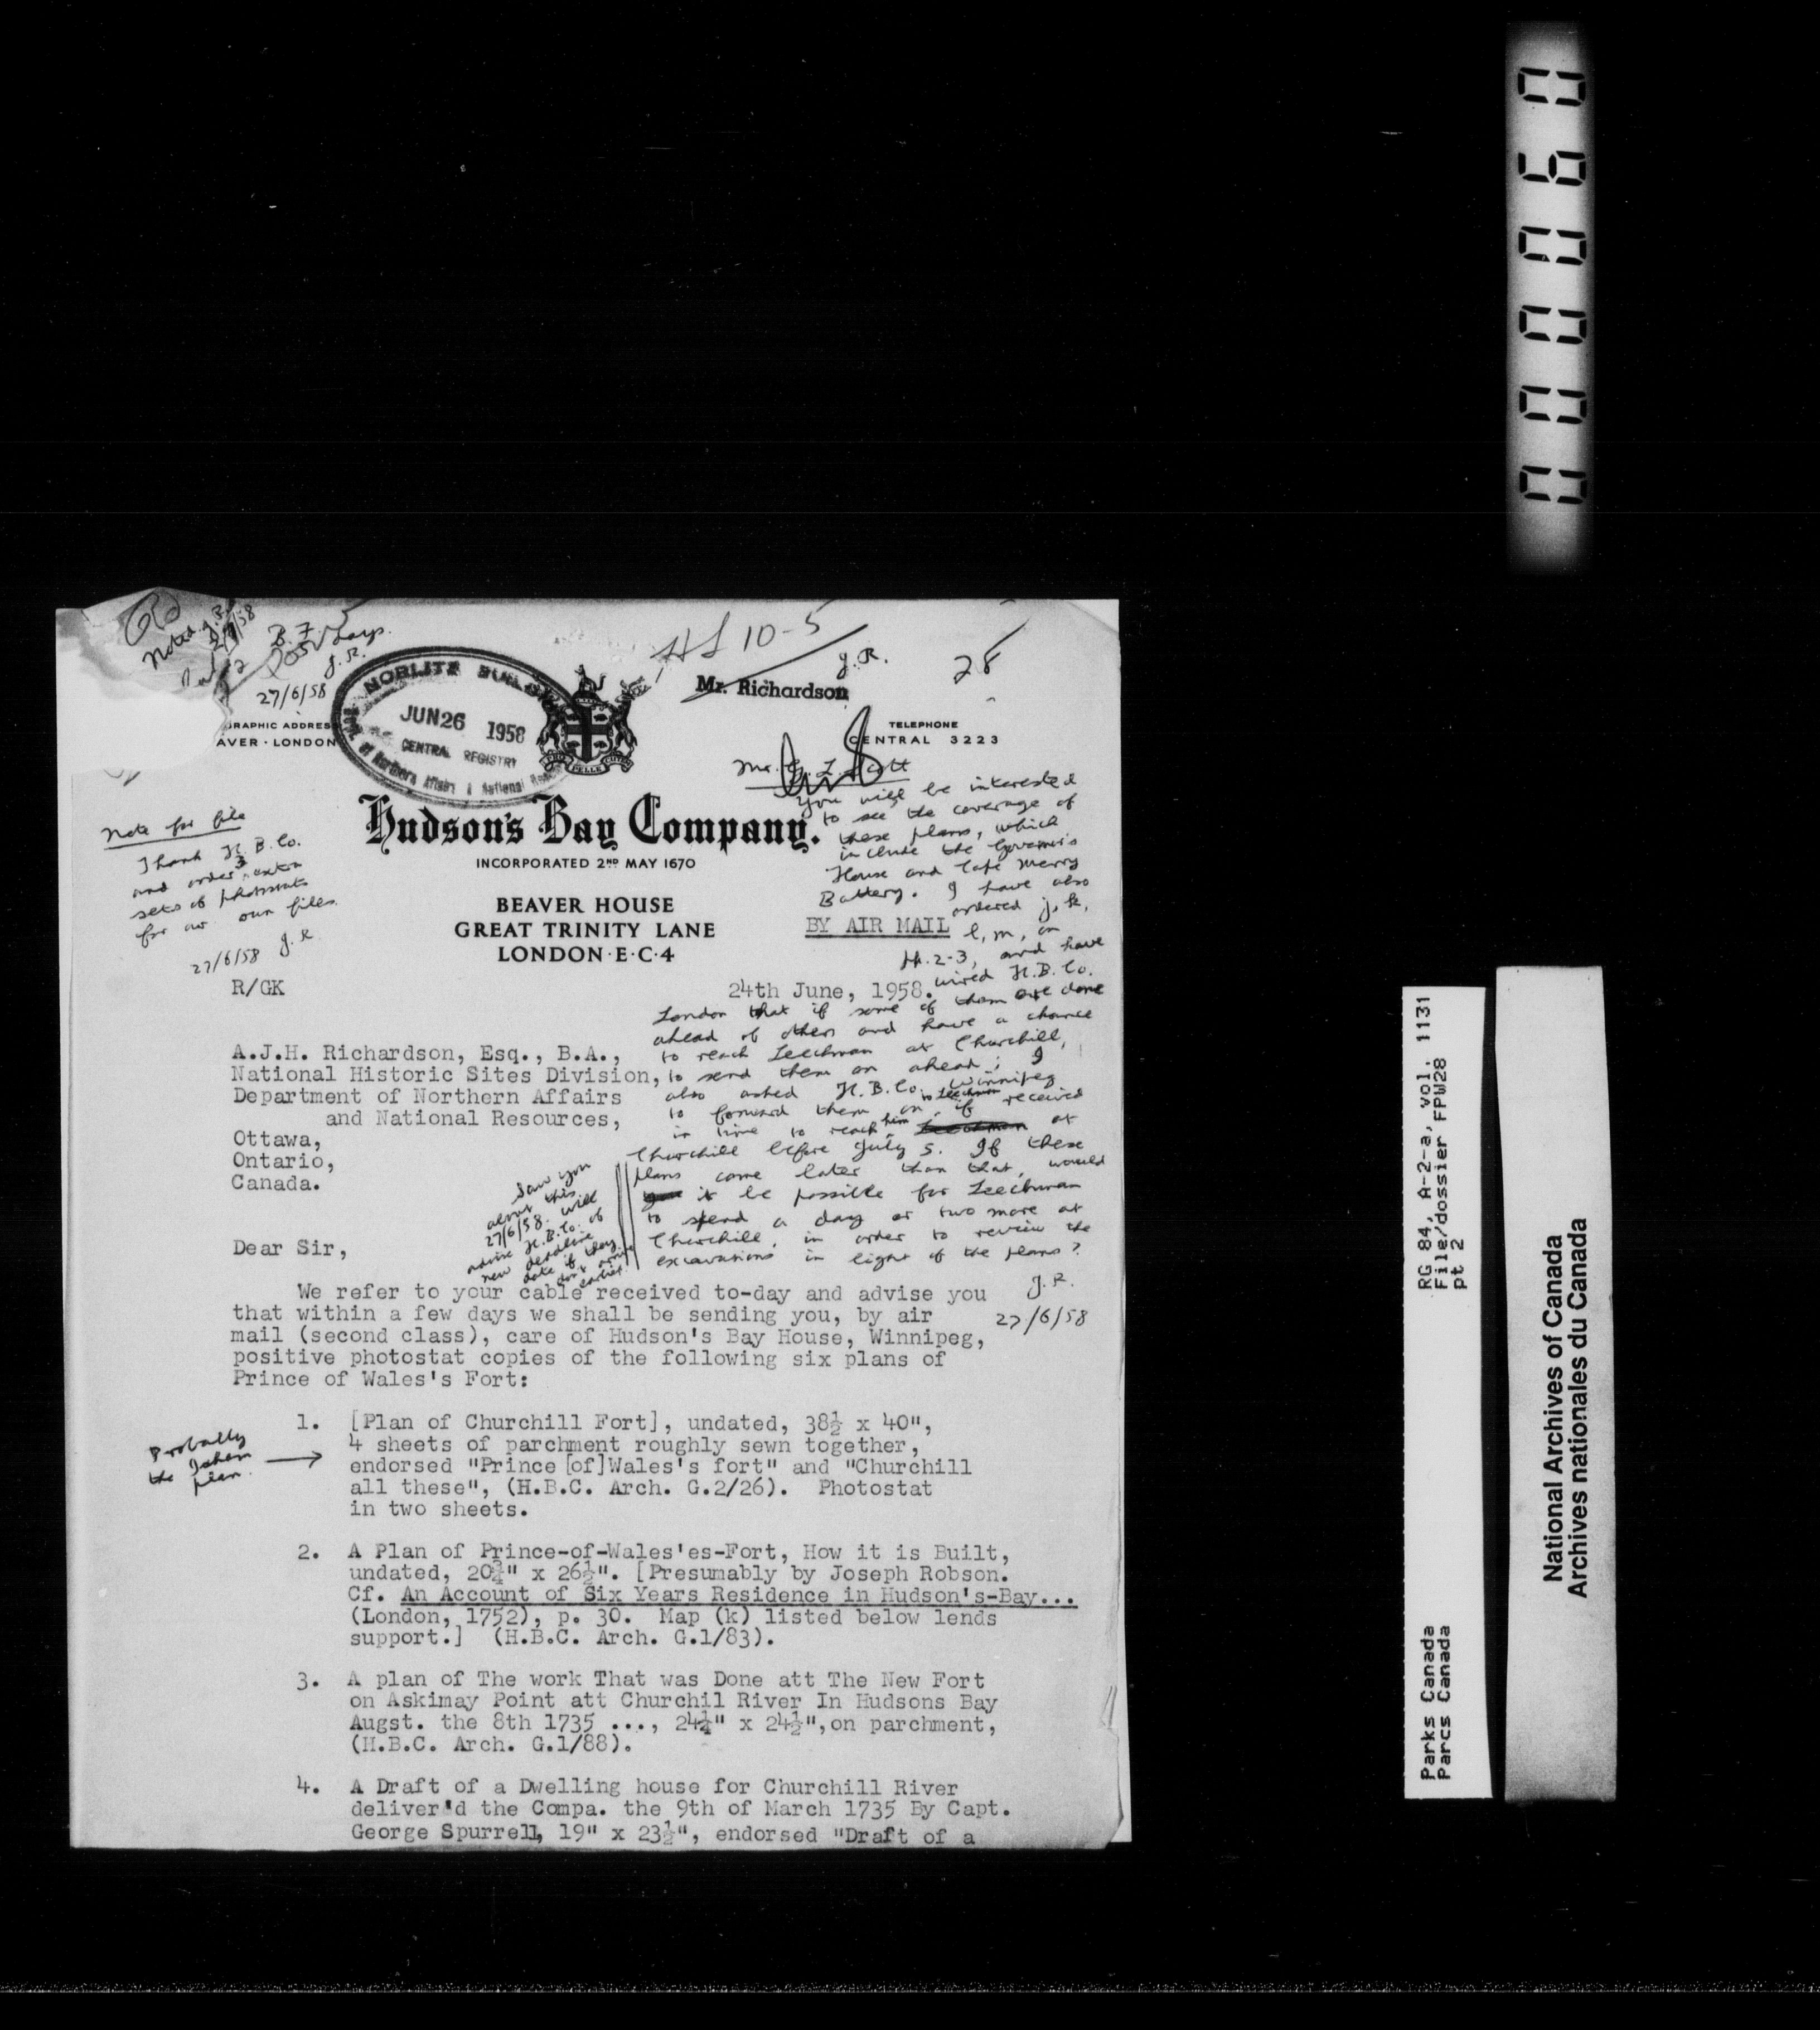 000060
Noted J.R.
B.F.
J.R.
27/6/58
HS 10-5
J.R.
28
Mr. Richardson
NORLITE BUILDING
JUN 26 1958
CENTRAL REGISTRY
of Northern Affairs & National
GRAPHIC ADDRESS
AVER · LONDON
PRO PELLE CUTEM
TELEPHONE
CENTRAL 3223
Hudson's Bay Company.
INCORPORATED 2ND MAY 1670
BEAVER HOUSE
GREAT TRINITY LANE
LONDON·E·C·4
Note for file
Thank H.B.Co.
and order 3 extra
sets of photostats
for our own files.
J.R.
27/6/58
You will be interested
to see the coverage of
these plans, which
include the Governor's
House and Cape Merry
Battery. I have also
ordered j, k,
l, m, on
pp. 2-3, and have
wired H.B.Co.
London that if some of them are done
ahead of others and have a chance
to reach Leechman at Churchill,
to send them on ahead; I
also asked H.B.Co. Winnipeg
to forward them on to Leechman if received
in time to reach him at
Churchill before July 5. If these
plans come later than that, would
it be possible for Leechman
to spend a day or two more at
Churchill, in order to review the
excavations in light of the plans?
J.R.
27/6/58
Saw you
about this
27/6/58. Will
advise H.B.Co. of
new deadline
date if they
don't arrive
earlier.
BY AIR MAIL
R/GK
24th June, 1958.
A.J.H. Richardson, Esq., B.A.,
National Historic Sites Division,
Department of Northern Affairs
and National Resources,
Ottawa,
Ontario,
Canada.
Dear Sir,
We refer to your cable received to-day and advise you
that within a few days we shall be sending you, by air
mail (second class), care of Hudson's Bay House, Winnipeg,
positive photostat copies of the following six plans of
Prince of Wales's Fort:
Probably
the Isham
plan.
1. [Plan of Churchill Fort], undated, 38½ x 40",
4 sheets of parchment roughly sewn together,
endorsed "Prince [of] Wales's fort" and "Churchill
all these", (H.B.C. Arch. G.2/26). Photostat
in two sheets.
2. A Plan of Prince-of-Wales'es-Fort, How it is Built,
undated, 20¾" x 26½". [Presumably by Joseph Robson.
Cf. An Account of Six Years Residence in Hudson's-Bay...
(London, 1752), p. 30. Map (k) listed below lends
support.] (H.B.C. Arch. G.1/83).
3. A plan of The work That was Done att The New Fort
on Askimay Point att Churchil River In Hudsons Bay
Augst. the 8th 1735 ..., 24¼" x 24½", on parchment,
(H.B.C. Arch. G.1/88).
4. A Draft of a Dwelling house for Churchill River
deliver'd the Compa. the 9th of March 1735 By Capt.
George Spurrell, 19" x 23½", endorsed "Draft of a
Parks Canada RG 84, A-2-a, vol. 1131
Parcs Canada File/dossier FPW28
pt 2
National Archives of Canada
Archives nationales du Canada